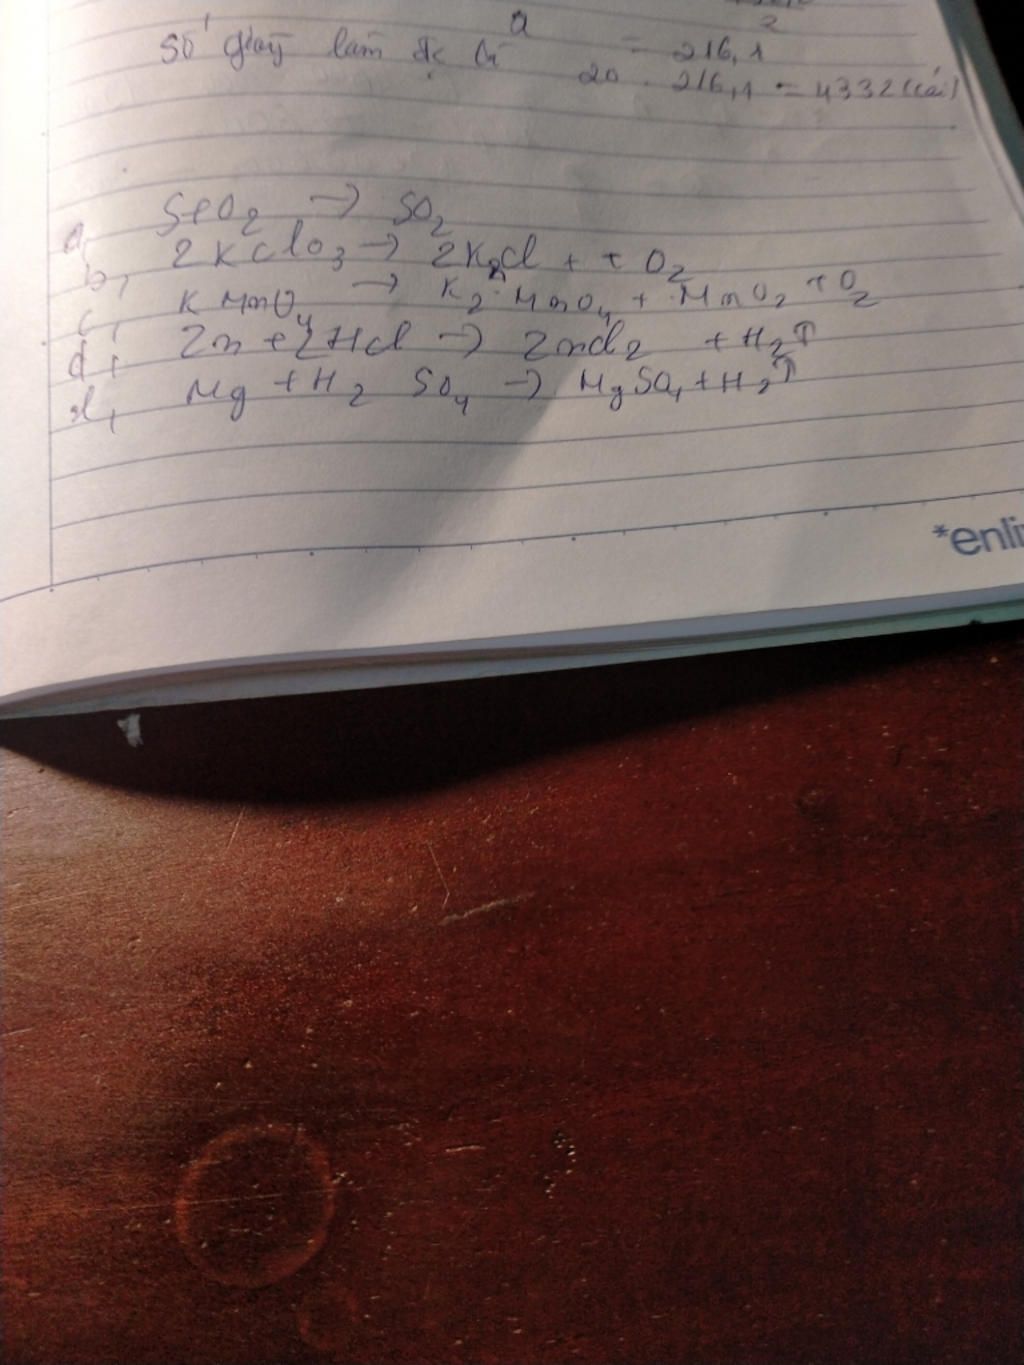 a
2
Số giấy làm đc là = 216,1
20 . 216,1 = 4332 (cái)
a, S + O2 → SO2
b, 2KClO3 → 2KCl + O2
c, KMnO4 → K2MnO4 + MnO2 + O2
d, Zn + 2HCl → ZnCl2 + H2↑
d, Mg + H2SO4 → MgSO4 + H2↑
*enli